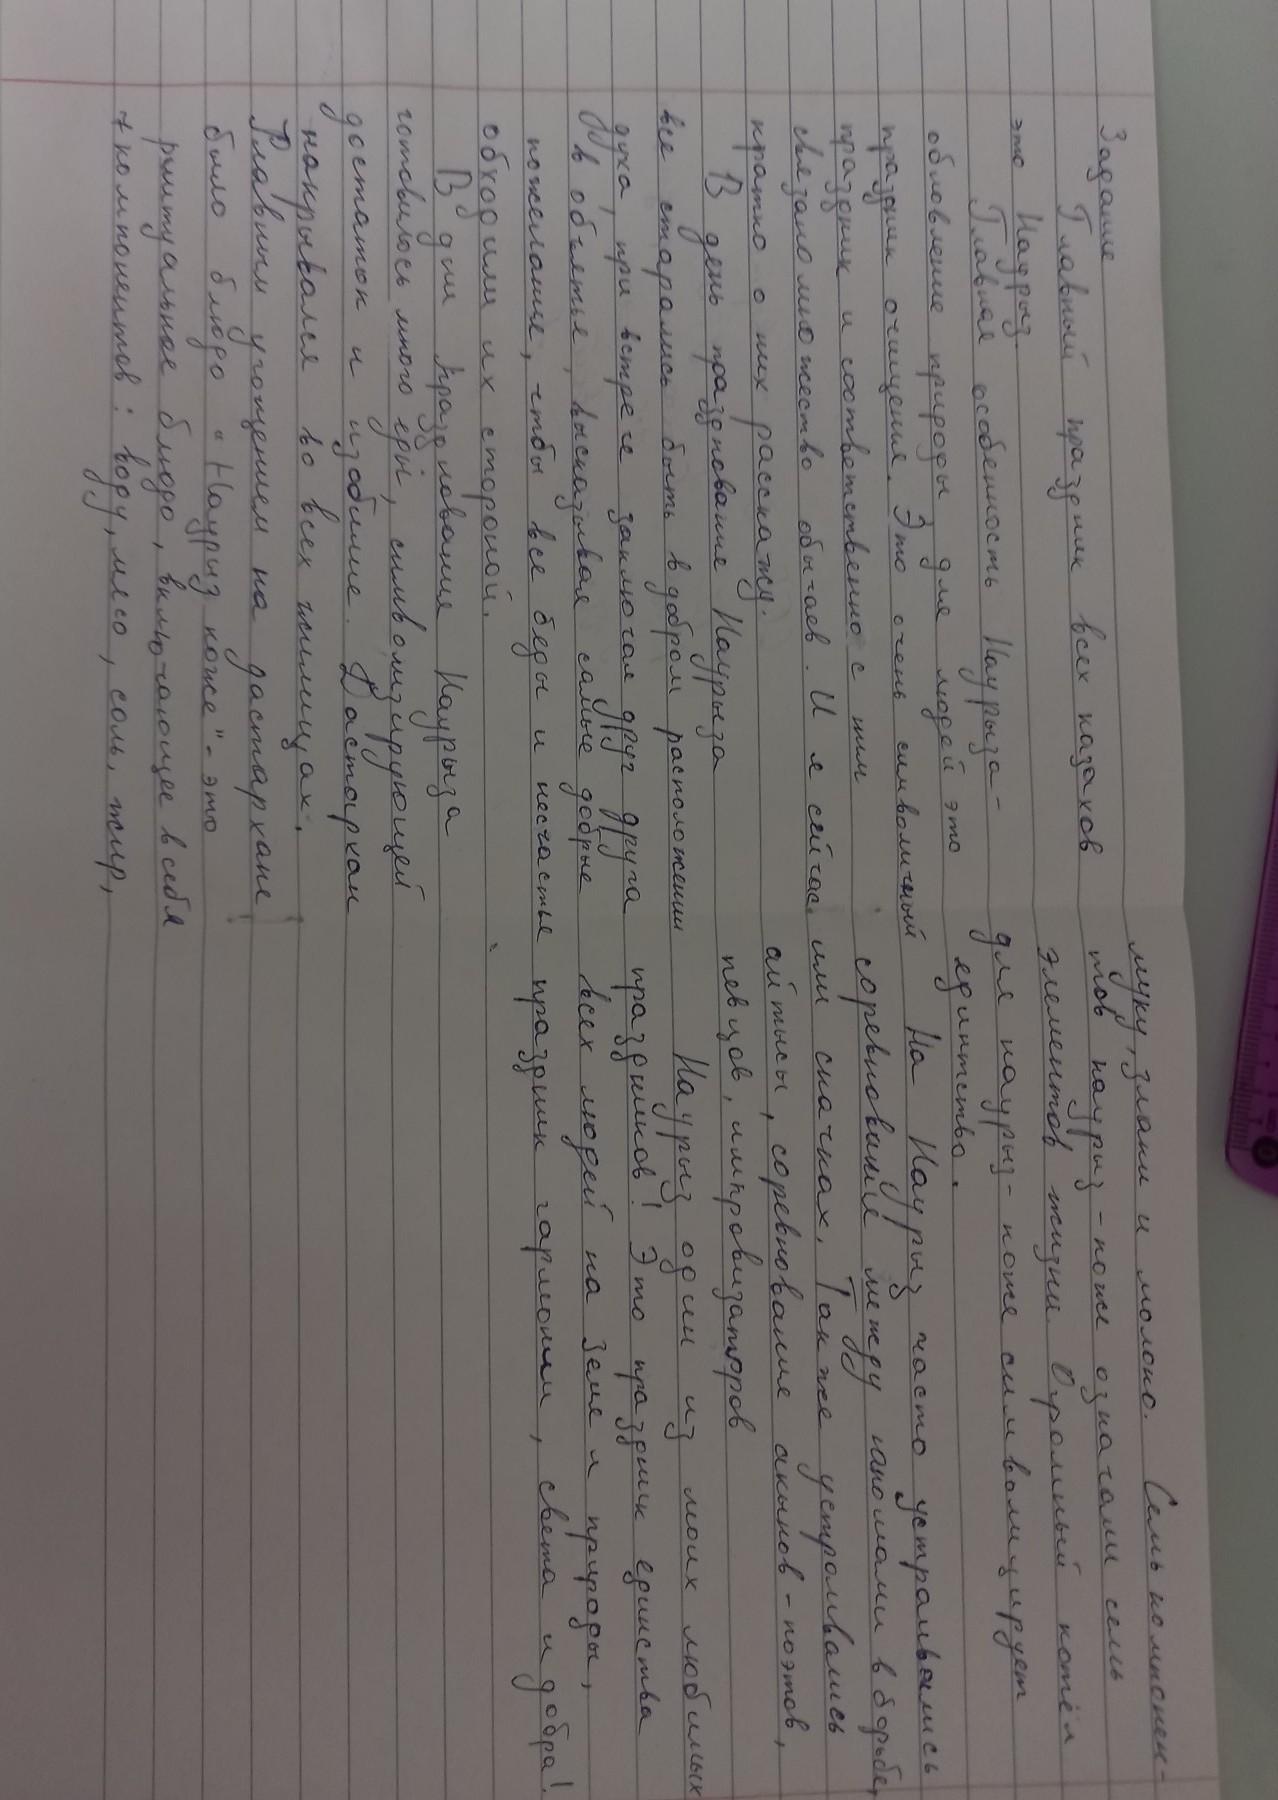 Задание
Главный праздник всех казахов
это Наурыз.
Главная особенность Наурыза -
обновление природы, для людей это
праздник очищения. Это очень символичный
праздник и соответственно с ним
связано множество обычаев. И я сейчас
кратко о них расскажу.
В день празднование Наурыза
все старались быть в добром расположении
духа, при встрече заключали друг друга
в объятье, высказывая самые добрые
пожелание, чтбы все беды и несчастья
обходили их стороной.
В дни празднования Наурыза
готовилось много еды, символизирующей
достаток и изобилие. Дастархан
накрывался во всех жилищах.
Главным угощением на дастархане
было блюдо "Наурыз коже" - это
ритуальное блюдо, включающее в себя
7 компонентов: воду, мясо, соль, жир,
муку, злаки и молоко. Семь компонен-
тов наурыз - коже означали семь
элементов жизни. Огромный котёл
для наурыз - коже символизирует
единство.
На Наурыз часто устраивались
соревнования между казахами в борьбе,
или скачках. Также устраивались
айтысы, соревнование акынов - поэтов,
певцов, импровизаторов
Наурыз один из моих любимых
праздников! Это праздник единства
всех людей на Земле и природы,
праздник гармонии, света и добра!